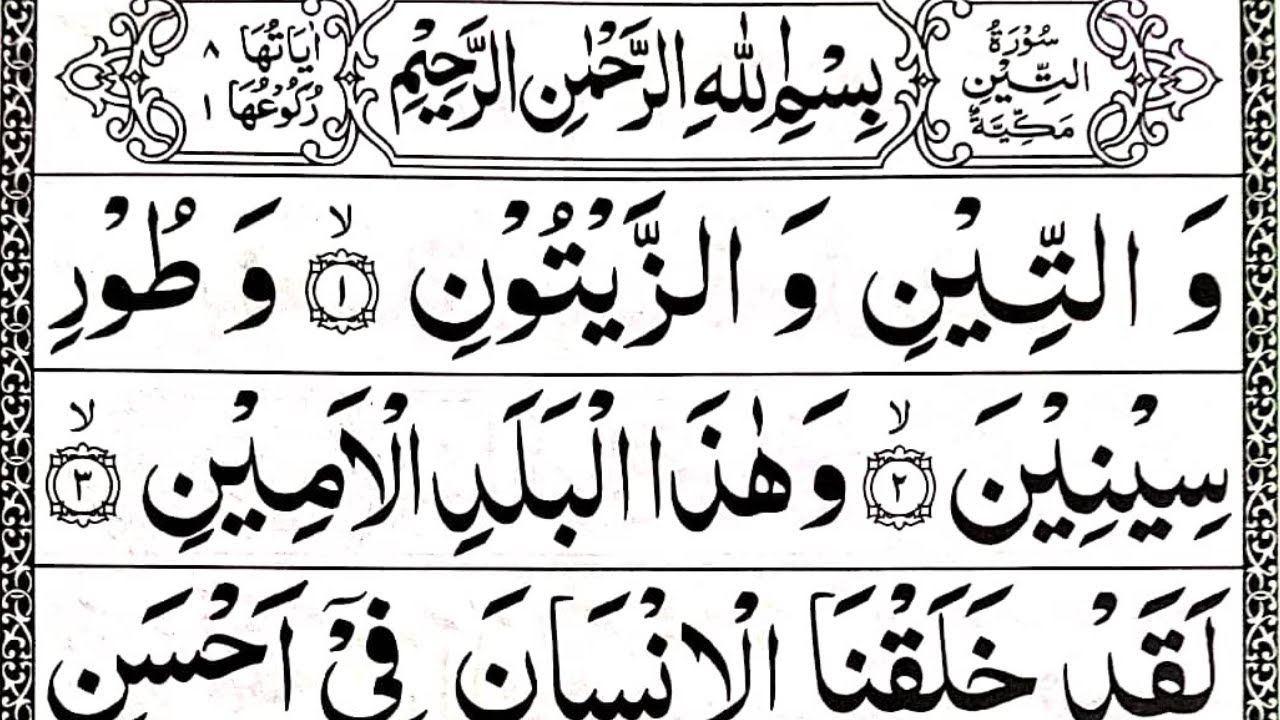 سُوْرَةُ
التِّيْنِ
مَكِّيَّةٌ
بِسْمِ اللهِ الرَّحْمٰنِ الرَّحِيْمِ
اٰيَاتُهَا ٨
رُكُوْعُهَا ١
وَ التِّيْنِ وَ الزَّيْتُوْنِ ۙ ١ وَ طُوْرِ
سِيْنِيْنَ ۙ ٢ وَ هٰذَا الْبَلَدِ الْاَمِيْنِ ۙ ٣
لَقَدْ خَلَقْنَا الْاِنْسَانَ فِيْۤ اَحْسَنِ